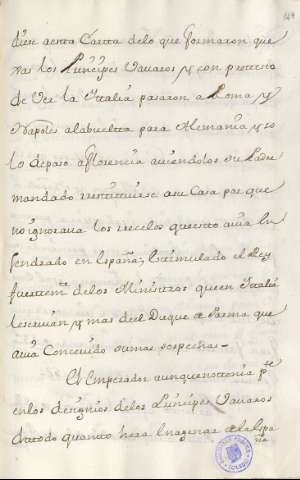 diese a enta Cartta delo que formaron que
xas los Príncipes Vavaros y con pretexto
de Ver la Ittalia pasaron a Roma y
Napoles alabueltta para Alemania y so
lo de paso a florencia aviendolos su Padre
mandado restituirse a su Casa por que
no ignorava los rrecelos que esto avia En
gendrado en España, Estimulado el Rey
fuertemte. delos Ministros que en Ittalia
tenian y mas de el Duque de Parma que
avia Concevido sumas sospechas
El Emperador aunque no ttenia pte.
en los designios de los Principes Vavaros
de todo quanto hera Imaginar de la Espa
ña